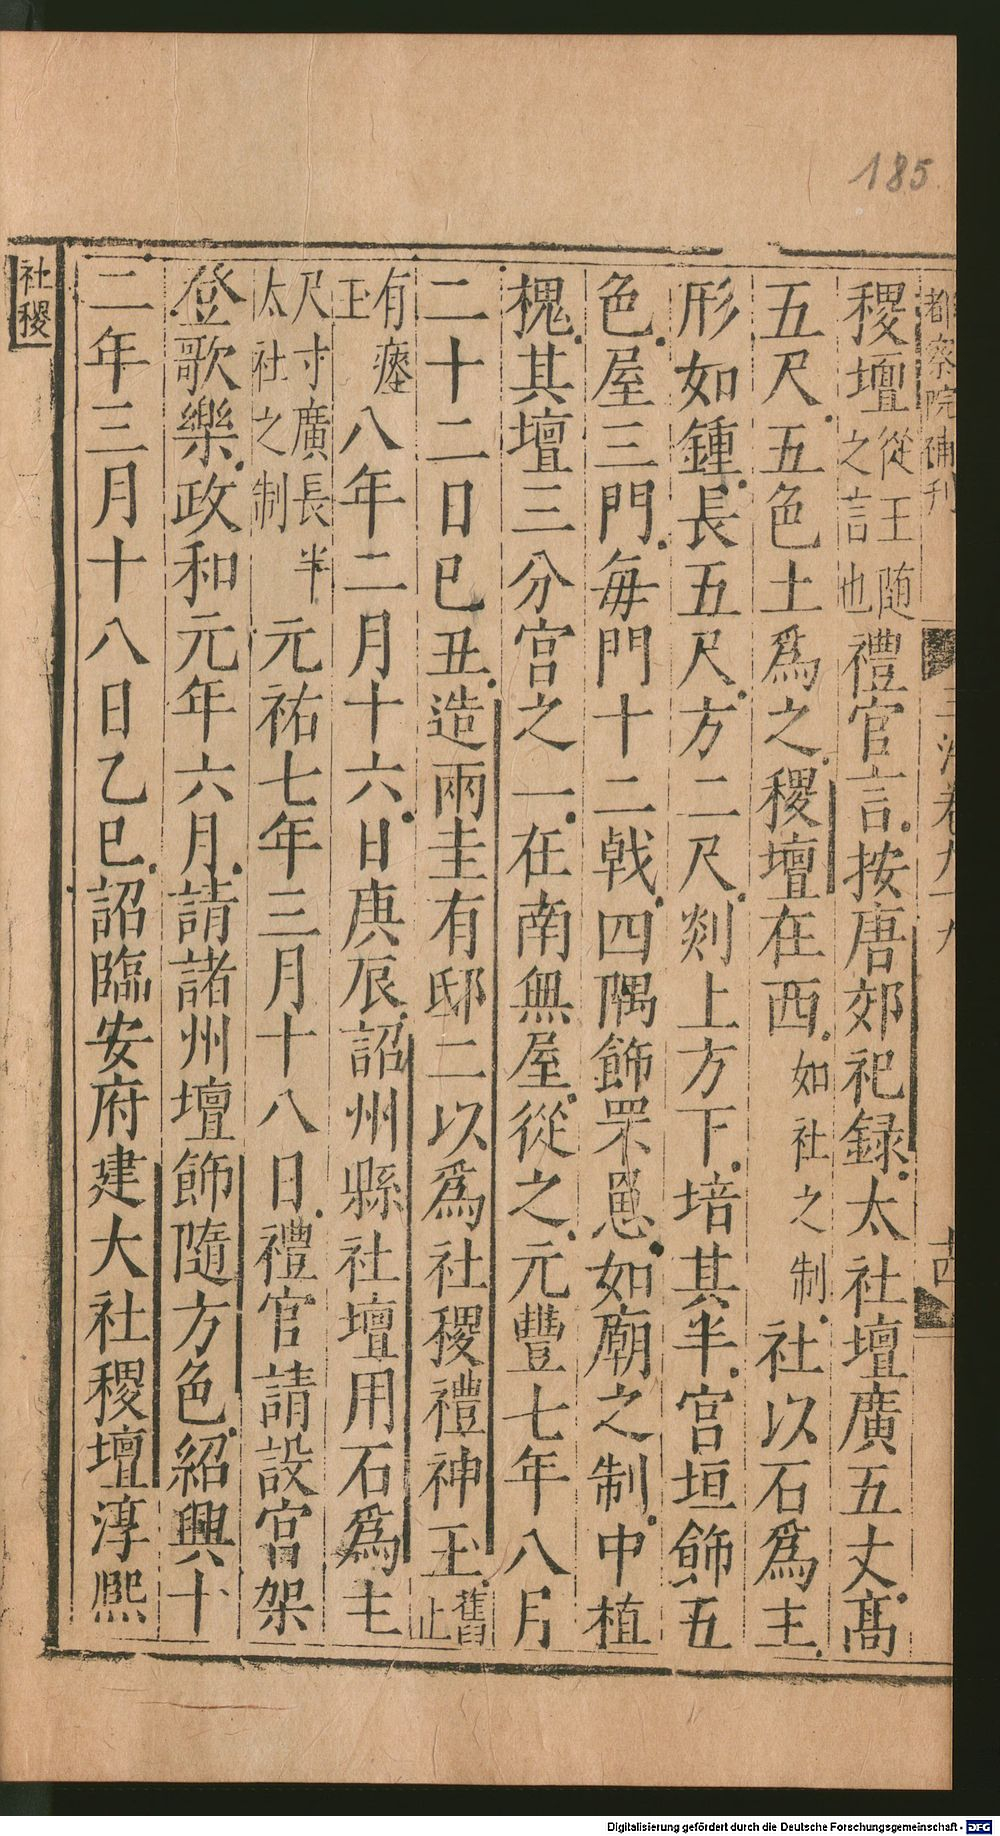 185
都察院補刊
稷壇從王随之言也禮官言按唐郊祀録太社壇廣五丈髙
五尺五色土爲之稷壇在西如社之制社以石爲主
形如鍾長五尺方二尺剡上方下培其半宫垣飾五
色屋三門每門十二戟四隅飾罘罳如廟之制中植
槐其壇三分宫之一在南無屋從之元豐七年八月
二十二日巳丑造兩圭有邸二以爲社稷禮神玉舊止
有瘞玉八年二月十六日庚辰詔州縣社壇用石爲主
尺寸廣長半太社之制元祐七年三月十八日禮官請設宫架
登歌樂政和元年六月請諸州壇飾隨方色紹興十
二年三月十八日乙巳詔臨安府建大社稷壇淳熙
社稷
Digitalisierung gefördert durch die Deutsche Forschungsgemeinschaft - DFG